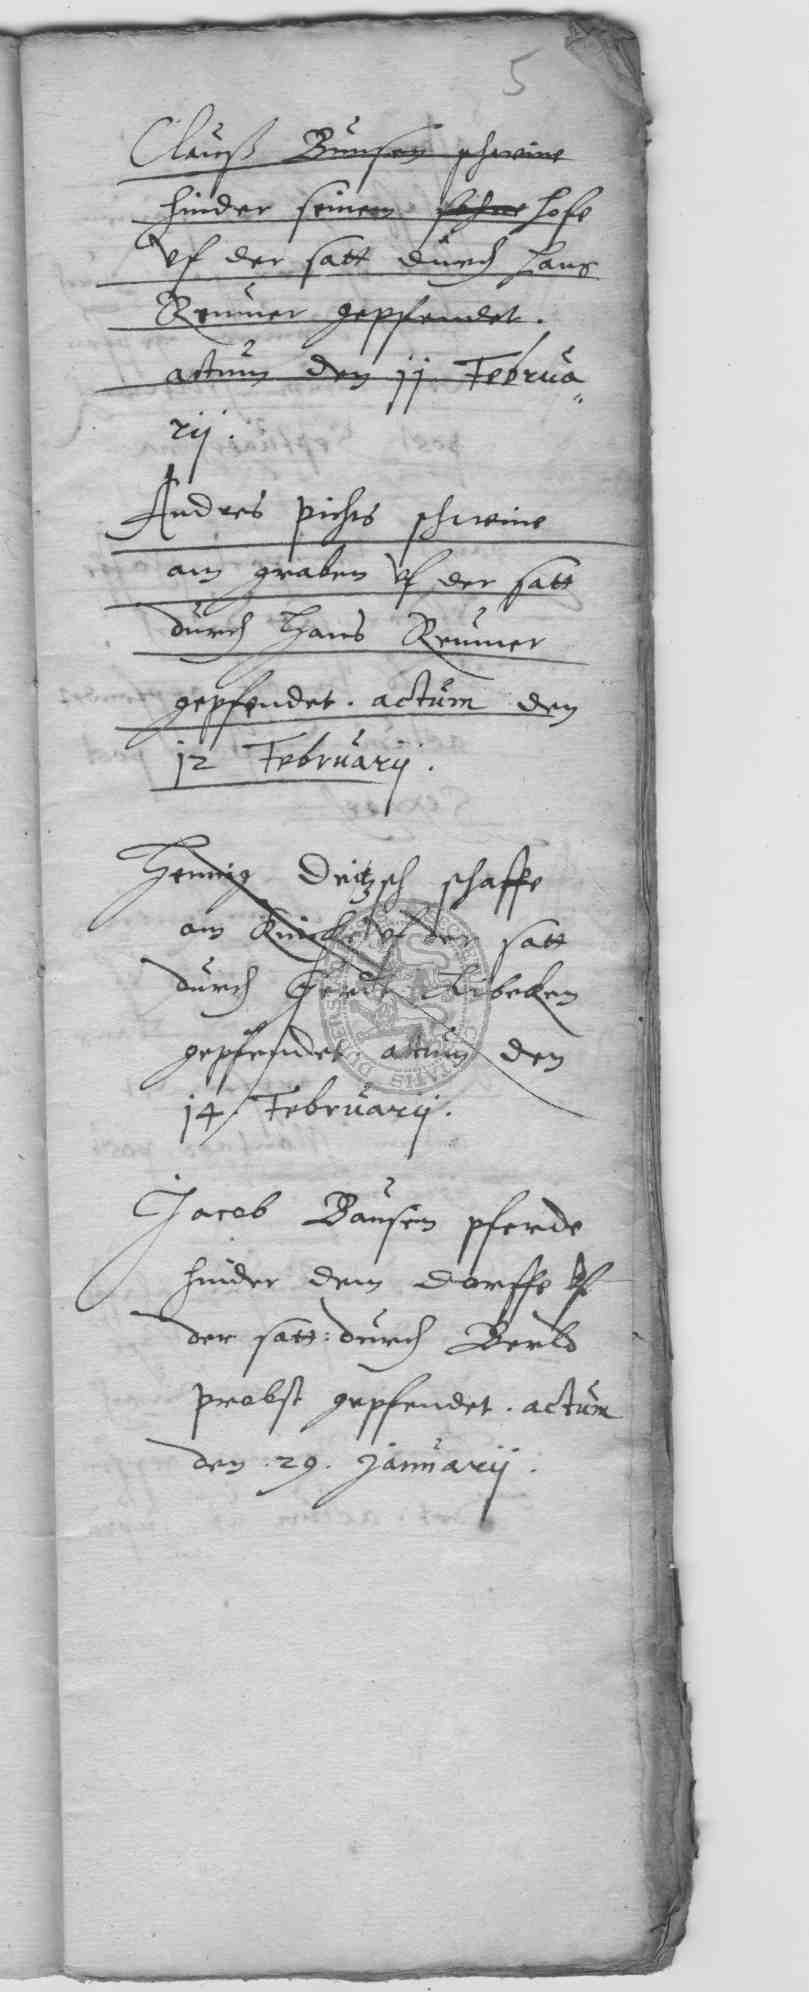 5
Clauß Bunsen schweine
hinder seinem hofe
vf der satt durch Hans
Reumer gepfendet.
actum den 11 Februa„
rij.
Andres pichts schweine
am graben vf der satt
durch Hans Reumer
gepfendet. actum den
12 Februarij.
Hennig Dritzsch schaffe
am vf der satt
durch Libeken
gepfendet actum den
14. Februarij.
Jacob Bausen pferde
hinder dem dorffe vf
der satt: durch Berld
probst gepfendet. actum
den .29. Januarij.